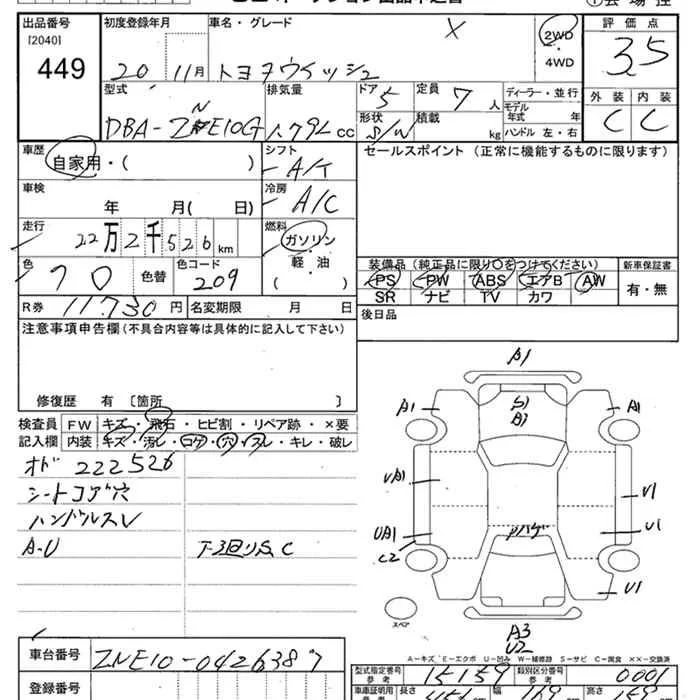 出品番号
[2040]
449
初度登録年月
20 11月
車名・グレード
トヨタウイッシュ
X
2WD
・
4WD
評価点
3.5
外装 内装
C C
型式
DBA-ZNE10G
排気量
1.79L cc
ドア
5
定員
7人
形状
S/W
積載
kg
ディーラー・並行
モデル年式 年
ハンドル 左・右
車歴
自家用・( )
シフト
A/T
セールスポイント (正常に機能するものに限ります)
車検
年 月( 日)
冷房
A/C
走行
22万2千526km
燃料
ガソリン
軽・油
( )
色
クロ
色替
色コード
209
装備品 (純正品に限り○をつけてください)
PS PW ABS エアB AW
SR ナビ TV カワ
新車保証書
有・無
R券 11,730円
名変期限 月 日
後日品
注意事項申告欄(不具合内容等は具体的に記入して下さい)
修復歴 有〔箇所 〕
検査員
記入欄
FW キズ・飛石・ヒビ割・リペア跡・×要
内装 キズ・汚レ・コゲ・穴・スレ・キレ・破レ
オド 222526
シートコゲ穴
ハンドルスレ
A・U
下廻りS,C
A1
A1
S1
A3
A1
UA1
U1
UA1
C2
U1
U1
A3
U2
スペア
A-キズ E-エクボ U-凹み W-補修跡 S-サビ C-腐食 ××-交換済
車台番号
ZNE10-0426387
登録番号
型式指定番号
参考
15159
類別区分番号
参考
0001
車庫証明用
参考
長さ
幅
高さ